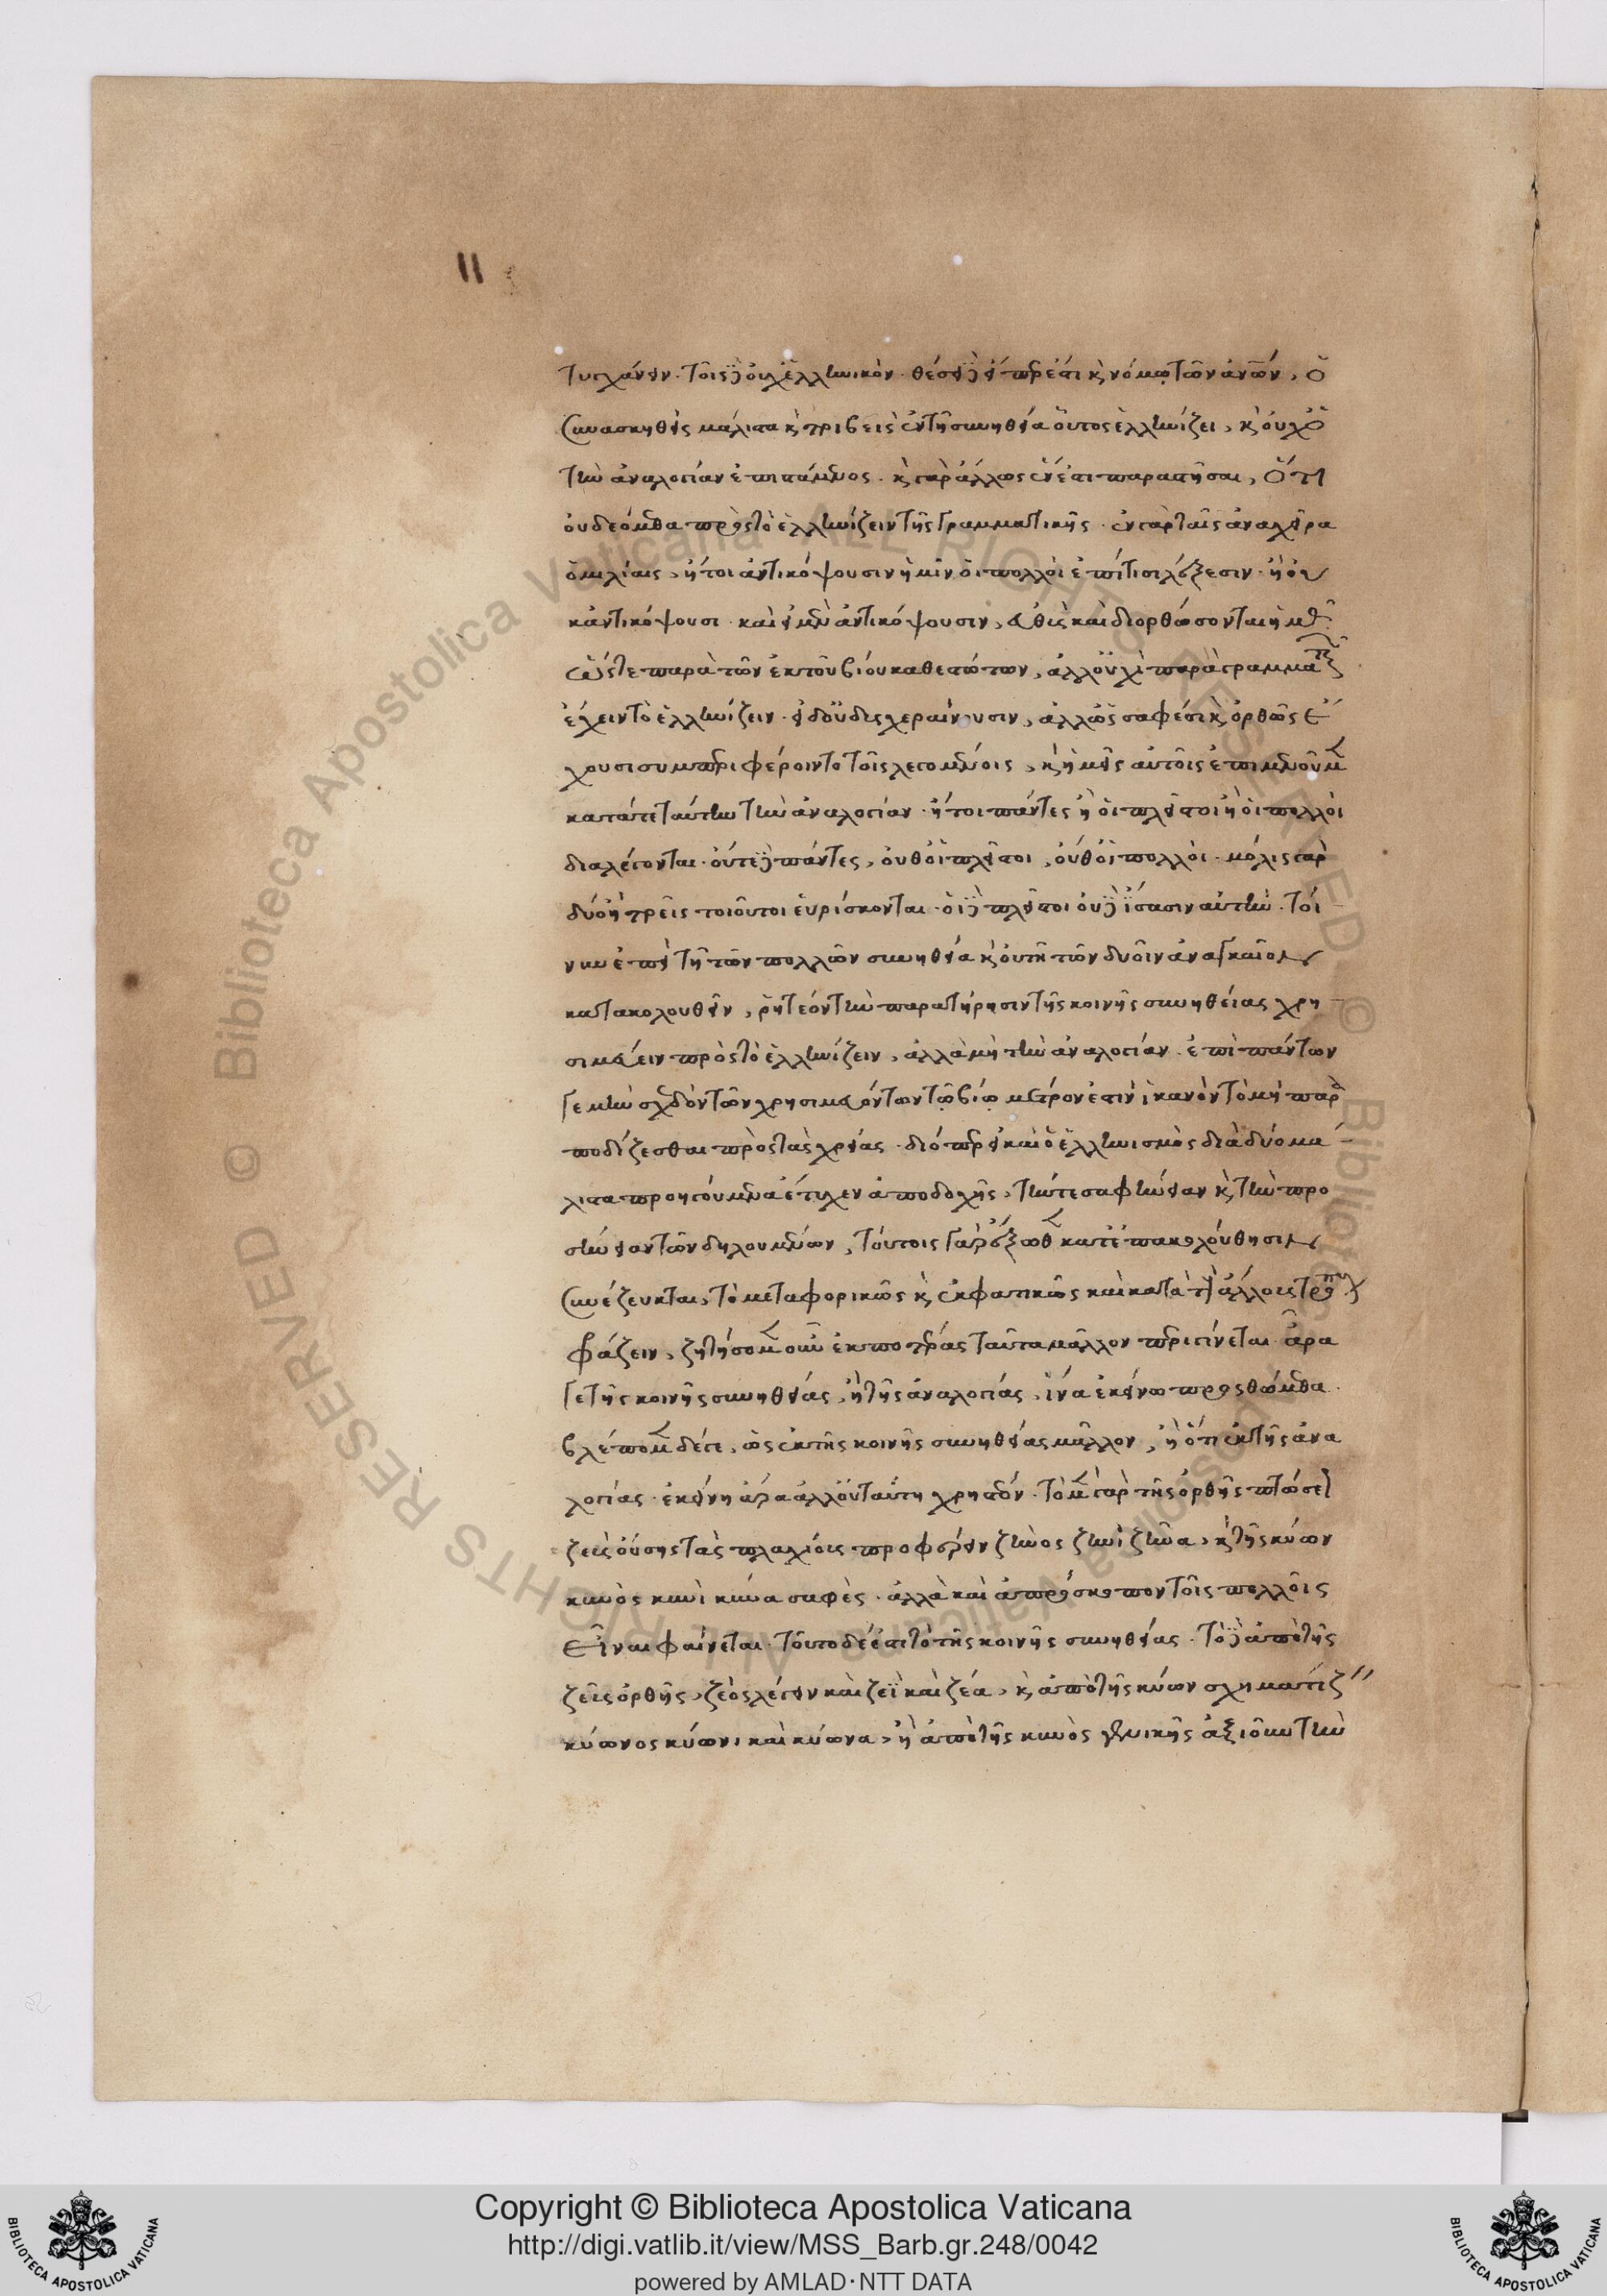 11
τυγχάνειν. τοῖς δ' οὐχ ἑλληνικὸν. θέσει δ' εἴπερ ἐστὶ κ νόμῳ τῶν ἀνων, ὁ
συνασκηθεὶς μάλιστα κ τριβεὶς ἐν τῇ συνηθεία οὗτος ἑλληνίζει, κ οὐχ ὁ
τὴν ἀναλογίαν ἐπιστάμενος. κ γὰρ ἄλλως ἔνεστι παραστῆσαι, ὅτι
οὐ δεόμεθα πρὸς τὸ ἑλληνίζειν τῆς γραμματικῆς. ἐν γὰρ ταῖς ἀναχεῖρα
ὁμιλίαις, ἤτοι ἀντικόψουσιν ἡμῖν οἱ πολλοὶ ἐπί τισι λέξεσιν. ἢ οὐ
κἀντικόψουσι. καὶ εἰ μὲν ἀντικόψουσιν, εὐθὺς καὶ διορθώσονται ἡμᾶς
ὥστε παρὰ τῶν ἐκ τοῦ βίου καθεστώτων, ἀλλ' οὐχὶ παρὰ γραμματικ
ἔχειν τὸ ἑλληνίζειν. εἰ δ' οὐ δυσχεραίνουσιν, ἀλλ' ὡς σαφέσι κ ὀρθῶς ἔ
χουσι συμπεριφέροιντο τοῖς λεγομένοις, κ ἡμεῖς αὐτοῖς ἐπιμενοῦμεν
κατά τε ταύτην τὴν ἀναλογίαν. ἤτοι πάντες ἢ οἱ πλεῖστοι ἢ οἱ πολλοὶ
διαλέγονται. οὔτε δὲ πάντες, οὔθ' οἱ πλεῖστοι, οὔθ' οἱ πολλοὶ. μόλις γὰρ
δύο ἢ τρεῖς τοιοῦτοι εὑρίσκονται. οἱ δὲ πλεῖστοι οὐδ' ἴσασιν αὐτὴν. τοί
νυν ἐπεὶ τῇ τῶν πολλῶν συνηθεία κ οὐ τῇ τῶν δυοῖν ἀναγκαῖον
κατακολουθεῖν, ῥητέον τὴν παρατήρησιν τῆς κοινῆς συνηθείας χρη
σιμεύειν πρὸς τὸ ἑλληνίζειν, ἀλλὰ μὴ τὴν ἀναλογίαν. ἐπὶ πάντων
γε μὴν σχεδὸν τῶν χρησιμευόντων τῷ βίῳ μέτρον ἐστὶν ἱκανὸν τὸ μὴ παρα
ποδίζεσθαι πρὸς τὰς χρείας. διόπερ εἰ καὶ ὁ ἑλληνισμὸς διὰ δύο μά
λιστα προηγούμενα ἔτυχεν ἀποδοχῆς, τήν τε σαφήνειαν κ τὴν προ
σήνειαν τῶν δηλουμένων, τούτοις γὰρ ἔξωθεν κατ' ἐπακολούθησιν
συνέζευκται, τὸ μεταφορικῶς κ ἐκφατικῶς καὶ κατὰ τοὺς ἄλλους τρόπους
φράζειν, ζητήσομεν οὖν ἐκ ποτέρας ταῦτα μᾶλλον περιγίνεται. ἆρα
γε τῆς κοινῆς συνηθείας, ἢ τῆς ἀναλογίας, ἵνα ἐκείνω προσθώμεθα.
βλέπομεν δέ γε, ὡς ἐκ τῆς κοινῆς συνηθείας μᾶλλον, ἢ ὅτι ἐκ τῆς ἀνα
λογίας. ἐκείνη ἄρα ἀλλ' οὐ ταύτη χρηστέον. τὸ μὲν γὰρ τῆς ὀρθῆς πτώσεως
ζεὺς οὔσης τὰς πλαγίους προφέρειν ζηνὸς ζηνὶ ζῆνα, κ τῆς κύων
κυνὸς κυνὶ κύνα σαφὲς. ἀλλὰ καὶ ἀπρόσκοπον τοῖς πολλοῖς
εἶναι φαίνεται. τοῦτο δέ ἐστι τὸ τῆς κοινῆς συνηθείας. τὸ δὲ ἀπὸ τῆς
ζεῦς ὀρθῆς, ζεὸς λέγειν καὶ ζεῒ καὶ ζέα, κ ἀπὸ τῆς κύων σχηματίζ
κύωνος κύωνι καὶ κύωνα, ἢ ἀπὸ τῆς κυνὸς γενικῆς ἀξιοῦν τὴν
© Biblioteca Apostolica Vaticana ALL RIGHTS RESERVED © Biblioteca Apostolica Vaticana ALL RIGHTS RESERVED
BIBLIOTECA APOSTOLICA VATICANA
Copyright © Biblioteca Apostolica Vaticana
http://digi.vatlib.it/view/MSS_Barb.gr.248/0042
powered by AMLAD·NTT DATA
BIBLIOTECA APOSTOLICA VATICANA